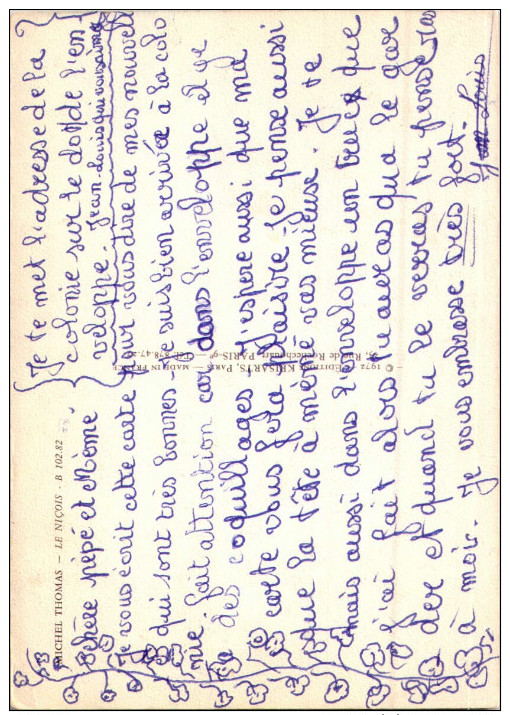 MICHEL THOMAS — LE NIÇOIS - B 102.82
© 1972 EDITIONS KRISARTS, PARIS — MADE IN FRANCE
Rue de Rochechouart - PARIS-9e — Tél. 878-47-
{ Je te met l'adresse de la }
{ colonie sur le dos de l'en }
{ veloppe. Jean-Louis qui vous aime }
chère pépé et Mémé.
Je vous écrit cette carte pour vous dire de mes nouvell
qui sont très bonnes - Je suis bien arrivée à la colo
nie. fait attention car dans l'enveloppe il ye
a des coquillages. J'espere aussi que ma
carte vous fera plaisire - Je pense aussi
que la tête à mémé vas mieuse. Je te
mais aussi dans l'enveloppe un truc que
j'ai fait alors tu auras qua le gar
der et quand tu le verras tu penseras
à moi. Je vous embrasse très fort.
Jean Louis